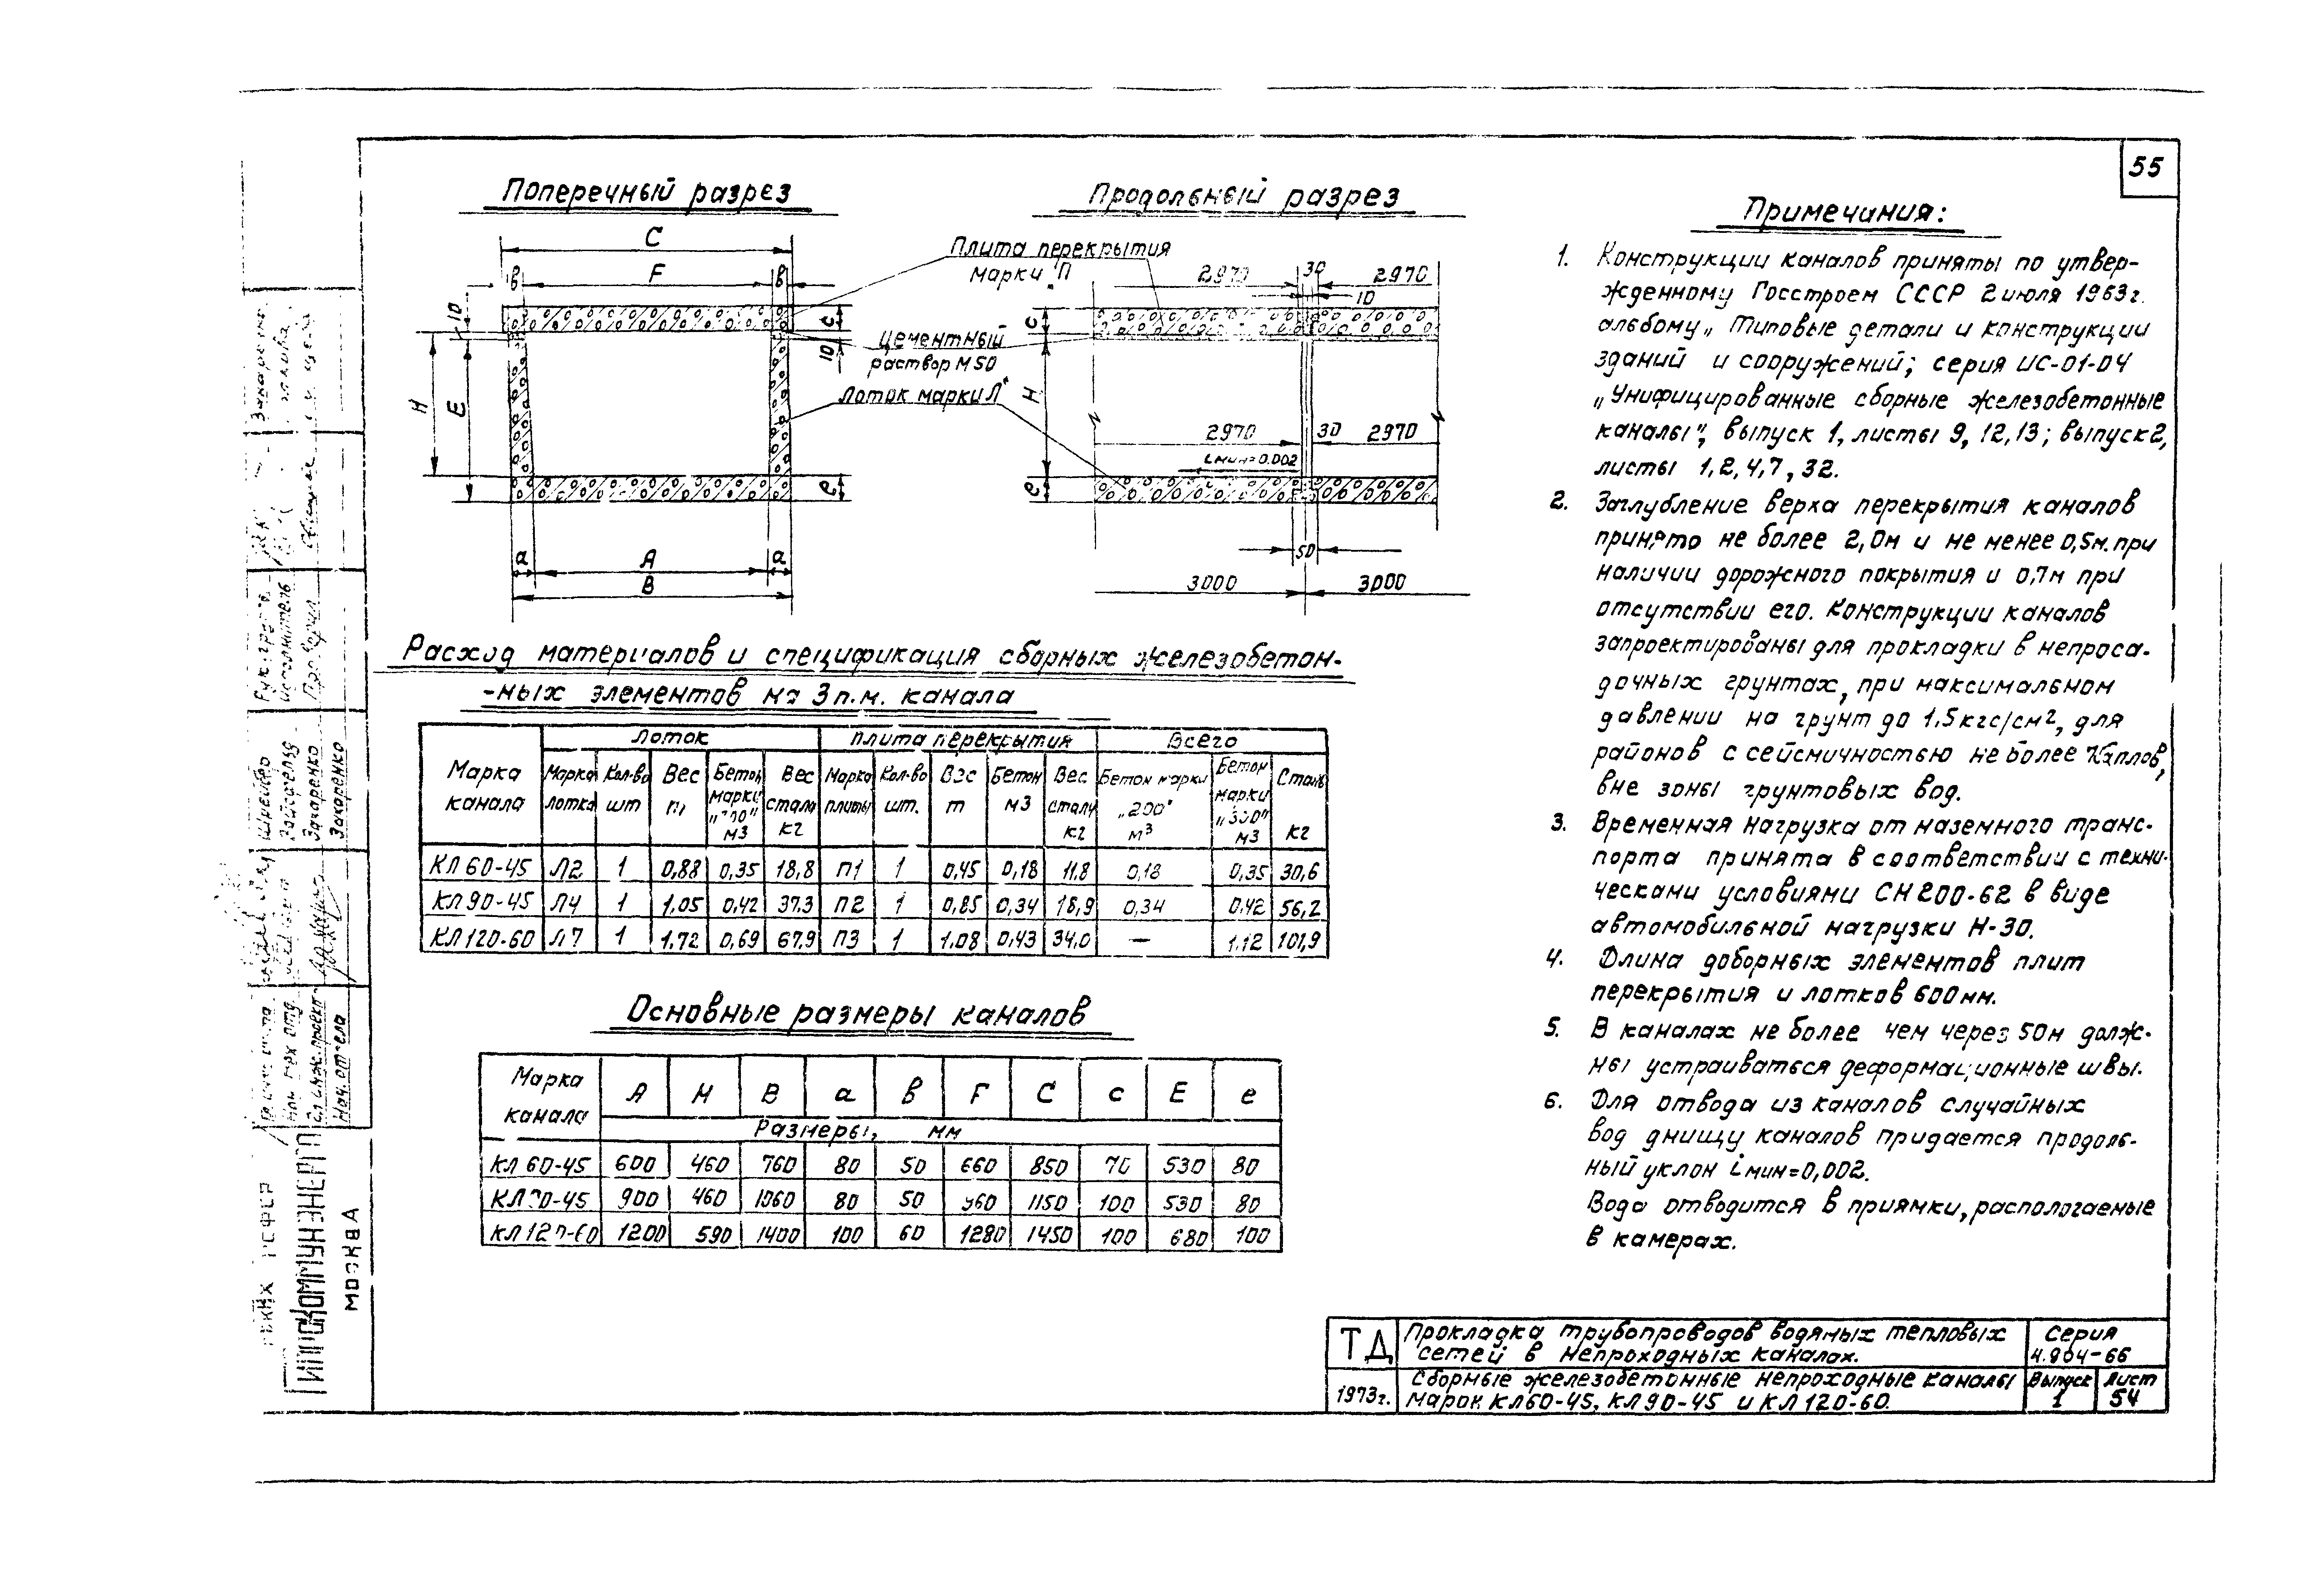 55
Поперечный разрез
C
в F в
10
c
10
H
E
e
a A a
B
Продольный разрез
Плита перекрытия
марки "П"
Цементный
раствор М50
Лоток марки "Л"
2970 30 2970
10
c
H
2970 30 2970
iмин=0.002
e
50
3000 3000
Расход материалов и спецификация сборных железобетон-
-ных элементов на 3 п.м. канала
Марка канала | Лоток | Плита перекрытия | Всего
Марка лотка | Кол-во шт | Вес т | Бетон марки м3 | Вес стали кг | Марка плиты | Кол-во шт. | Вес т | Бетон м3 | Вес стали кг | Бетон марки „200" м3 | Бетон марки „300" м3 | Сталь кг
КЛ 60-45 Л2 1 0,88 0,35 18,8 П1 1 0,45 0,18 11,8 0,18 0,35 30,6
КЛ 90-45 Л4 1 1,05 0,42 37,3 П2 1 0,85 0,34 18,9 0,34 0,42 56,2
КЛ 120-60 Л7 1 1,72 0,69 67,9 П3 1 1,08 0,43 34,0 — 1,12 101,9
Основные размеры каналов
Марка канала | A | H | B | a | в | F | C | c | E | e
Размеры, мм
КЛ 60-45 600 460 760 80 50 660 850 70 530 80
КЛ 90-45 900 460 1060 80 50 960 1150 100 530 80
КЛ 120-60 1200 590 1400 100 60 1280 1450 100 680 100
Примечания:
1. Конструкции каналов приняты по утвер-
жденному Госстроем СССР 2 июля 1963 г.
альбому „Типовые детали и конструкции
зданий и сооружений; серия ИС-01-04
„Унифицированные сборные железобетонные
каналы", выпуск 1, листы 9, 12, 13; выпуск 2,
листы 1, 2, 4, 7, 32.
2. Заглубление верха перекрытия каналов
принято не более 2,0м и не менее 0,5м. при
наличии дорожного покрытия и 0,7м при
отсутствии его. Конструкции каналов
запроектированы для прокладки в непроса-
дочных грунтах, при максимальном
давлении на грунт до 1,5 кгс/см2, для
районов с сейсмичностью не более
вне зоны грунтовых вод.
3. Временная нагрузка от наземного транс-
порта принята в соответствии с техни-
ческами условиями СН 200-62 в виде
автомобильной нагрузки Н-30.
4. Длина доборных элементов плит
перекрытия и лотков 600мм.
5. В каналах не более чем через 50м долж-
ны устраиваться деформационные швы.
6. Для отвода из каналов случайных
вод днищу каналов придается продоль-
ный уклон iмин=0,002.
Вода отводится в приямки, распологаемые
в камерах.
ТД
1973г.
Прокладка трубопроводов водяных тепловых
сетей в непроходных каналах.
Серия
4.904-66
Сборные железобетонные непроходные каналы
марок КЛ60-45, КЛ90-45 и КЛ120-60.
Выпуск
1
Лист
54
Нач. отдела
Исполнитель
Проверил
Шрейбер
Захаренко
Захаренко
РСФСР
ГИПРОКОММУНЭНЕРГО
МОСКВА